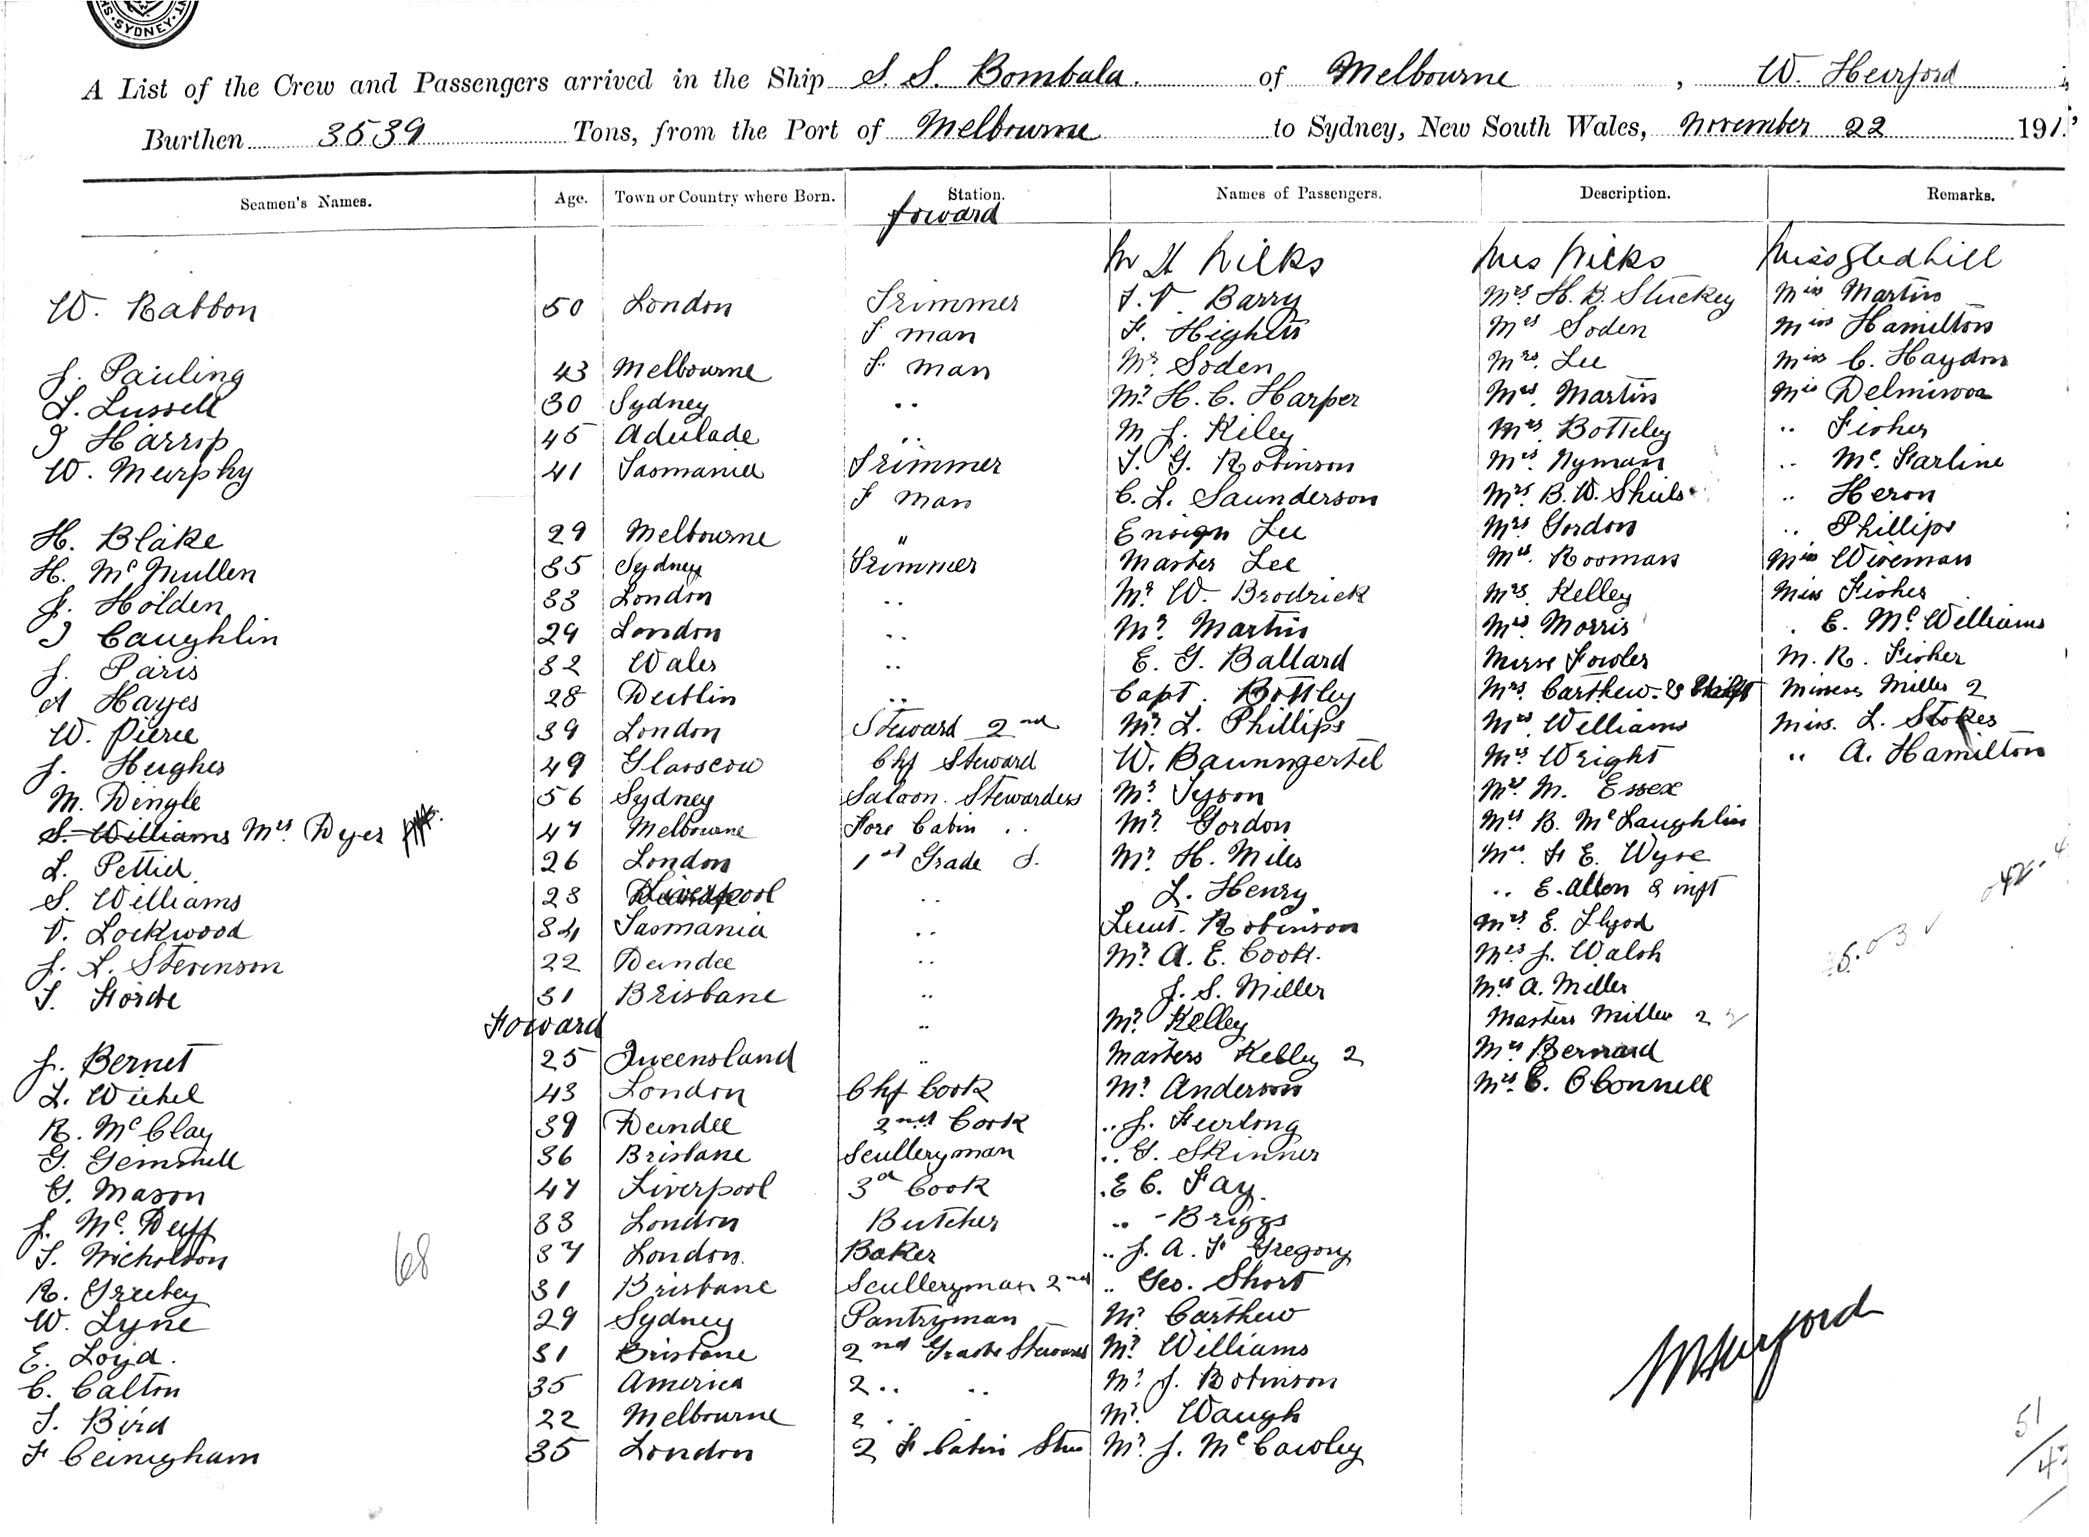 SYDNEY
A List of the Crew and Passengers arrived in the Ship S. S. Bombala. of Melbourne, W. Hurford
Burthen 3539 Tons, from the Port of Melbourne to Sydney, New South Wales, November 22 191
Seamen's Names. Age. Town or Country where Born. Station. Names of Passengers. Description. Remarks.
Foward
Mr H Wilks Mrs Wilks Miss Gledhill
W. Rabbon 50 London Trimmer T. V. Barry Mrs H. B. Stuckey Miss Martin
F man F. Highett Mrs Soden Miss Hamilton
J. Pauling 43 Melbourne F. man Mr. Soden Mrs. Lee Miss C. Haydon
L. Lussell 30 Sydney .. Mr H. C. Harper Mrs. Martin Mis
T Harrip 45 Adelaide .. M J. Kiley Mrs. Botteley .. Fisher
W. Murphy 41 Tasmania Trimmer T. G. Robinson Mrs. Nyman .. Mc. Farline
F man C. L. Saunderson Mrs B. W. Shiels .. Heron
H. Blake 29 Melbourne " Ensign Lee Mrs Gordon .. Phillips
H. Mc Mullen 35 Sydney Trimmer Master Lee Mrs. Rooman Miss Wiseman
J. Holden 33 London .. Mr W. Brodrick Mrs. Kelley Miss Fisher
T Caughlin 29 London .. Mr. Martin Mrs Morris . E. Mc Williams
J. Paris 32 Wales .. E. G. Ballard Nurse Fowler M. R. Fisher
A Hayes 28 Dublin .. Capt. Bottley Mrs. Carthew. & Misses Miller 2
W. Pierce 39 London Steward 2nd Mr. L. Phillips Mrs Williams Miss. L. Stokes
J. Hughes 49 Glascow Chf Steward W. Baumgertel Mrs Wright .. A. Hamilton
M. Dingle 56 Sydney Saloon. Stewardess Mr. Tyson Mrs. M. Essex
S. Williams Mrs. Dyer 47 Melbourne Fore Cabin .. Mr. Gordon Mrs B. Mc Laughlin
L. Pettid. 26 London 1st Grade S. Mr. H. Miles Mrs. F. E. Wyse
S. Williams 23 Liverpool .. L. Henry. .. E. Allen & inft
V. Lockwood 34 Tasmania .. Lieut. Robinson Mrs E. Llyod
J. L. Stevenson 22 Dundee .. Mr. A. E. Cook. Mrs J. Walsh
T. Forde 31 Brisbane .. J. S. Miller Mrs A. Miller
Foward .. Mr. Kelley Masters Miller 2
J. Bernet 25 Queensland .. Masters Kelley 2 Mrs. Bernard
L. Wichel 43 London Chf Cook Mr Anderson Mrs. C. O Connell
R. Mc Clay 39 Dundee 2nd Cook .. J. Furlong
G. Gemmell 36 Brisbane Sculleryman .. G. Skinner
G. Mason 47 Liverpool 3rd Cook . E C. Fay.
J. Mc. Duff 33 London Butcher .. - Briggs
T. Nicholson 37 London. Baker .. J. A. F Gregory
68
R. Grubey 31 Brisbane Sculleryman 2nd .. Geo. Short
W. Lyne 29 Sydney Pantryman Mr. Carthew
E. Loyd. 31 Brisbane 2nd Grade Steward Mr. Williams
C. Calton 35 America 2 .. .. Mr. J. Botinson
T. Bird 22 Melbourne 2 .. . Mr. Waugh
F Ceinigham 35 London 2 F Cabin Stew Mr. J. Mc Cawley
W Hurford
51